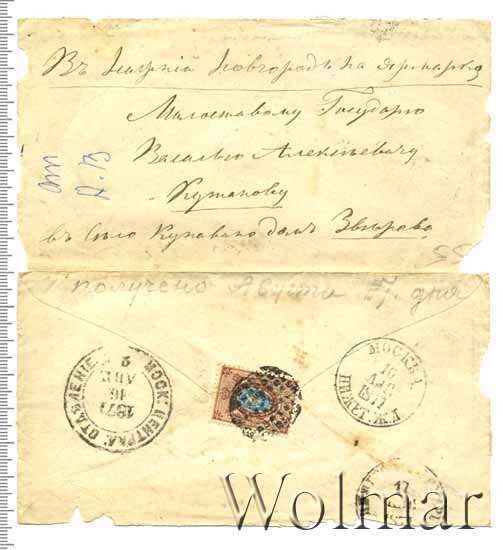 Въ Нижній Новгородъ на ярмарку
Милостивому Государю
Василью Алексѣевичу
Кутакову
въ Село Кунавино домъ Звѣрева
от
получено Августа 17. дня
МОСК. ЦЕНТРАЛ. ОТДѢЛЕНІЕ.
2
АВГ
16
1871
МОСКВА
16
АВГ
1871
17
Wolmar